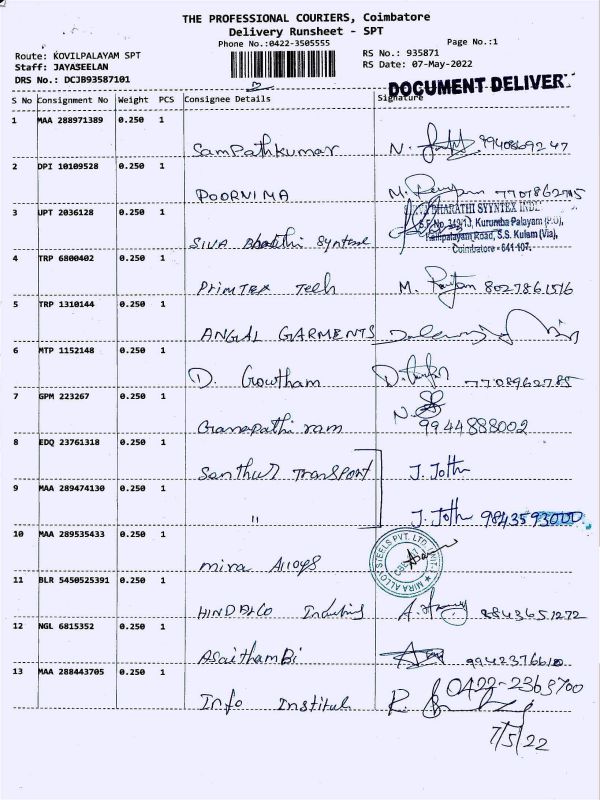 THE PROFESSIONAL COURIERS, Coimbatore
Delivery Runsheet - SPT
Phone No.:0422-3505555 Page No.:1
Route: KOVILPALAYAM SPT RS No.: 935871
Staff: JAYASEELAN RS Date: 07-May-2022
DRS No.: DCJB93587101
DOCUMENT DELIVER
S No Consignment No Weight PCS Consignee Details Signature
1 MAA 288971389 0.250 1
SamPathkumar N. 9940869247
2 DPI 10109528 0.250 1
POORNIMA M.
3 JPT 2036128 0.250 1
BHARATHI SYYNTEX
S.F.No. 349/13, Kurumba Palayam (P.O),
Rampalayam Road, S.S. Kulam (Via),
Coimbatore - 641 107.
SIVA Bharathi Syntexe
4 TRP 6800402 0.250 1
PrimTex Tech M. 8027861516
5 TRP 1310144 0.250 1
ANGAL GARMENTS
6 MTP 1152148 0.250 1
D. Gowtham D. 7708962785
7 GPM 223267 0.250 1
Ganapathi ram N.
9944888002
8 EDQ 23761318 0.250 1
Santhu TransPort J. Joth
9 MAA 289474130 0.250 1
" J. Joth 9843593000
10 MAA 289535433 0.250 1
mira Alloys
MIRA ALLOY STEELS PVT. LTD.
11 BLR 5450525391 0.250 1
HINDALCO Industries A. 9843651272
12 NGL 6815352 0.250 1
AsaithamBi 9942376610
13 MAA 288443705 0.250 1
Info Institut R. 0422-2363700
7/5/22